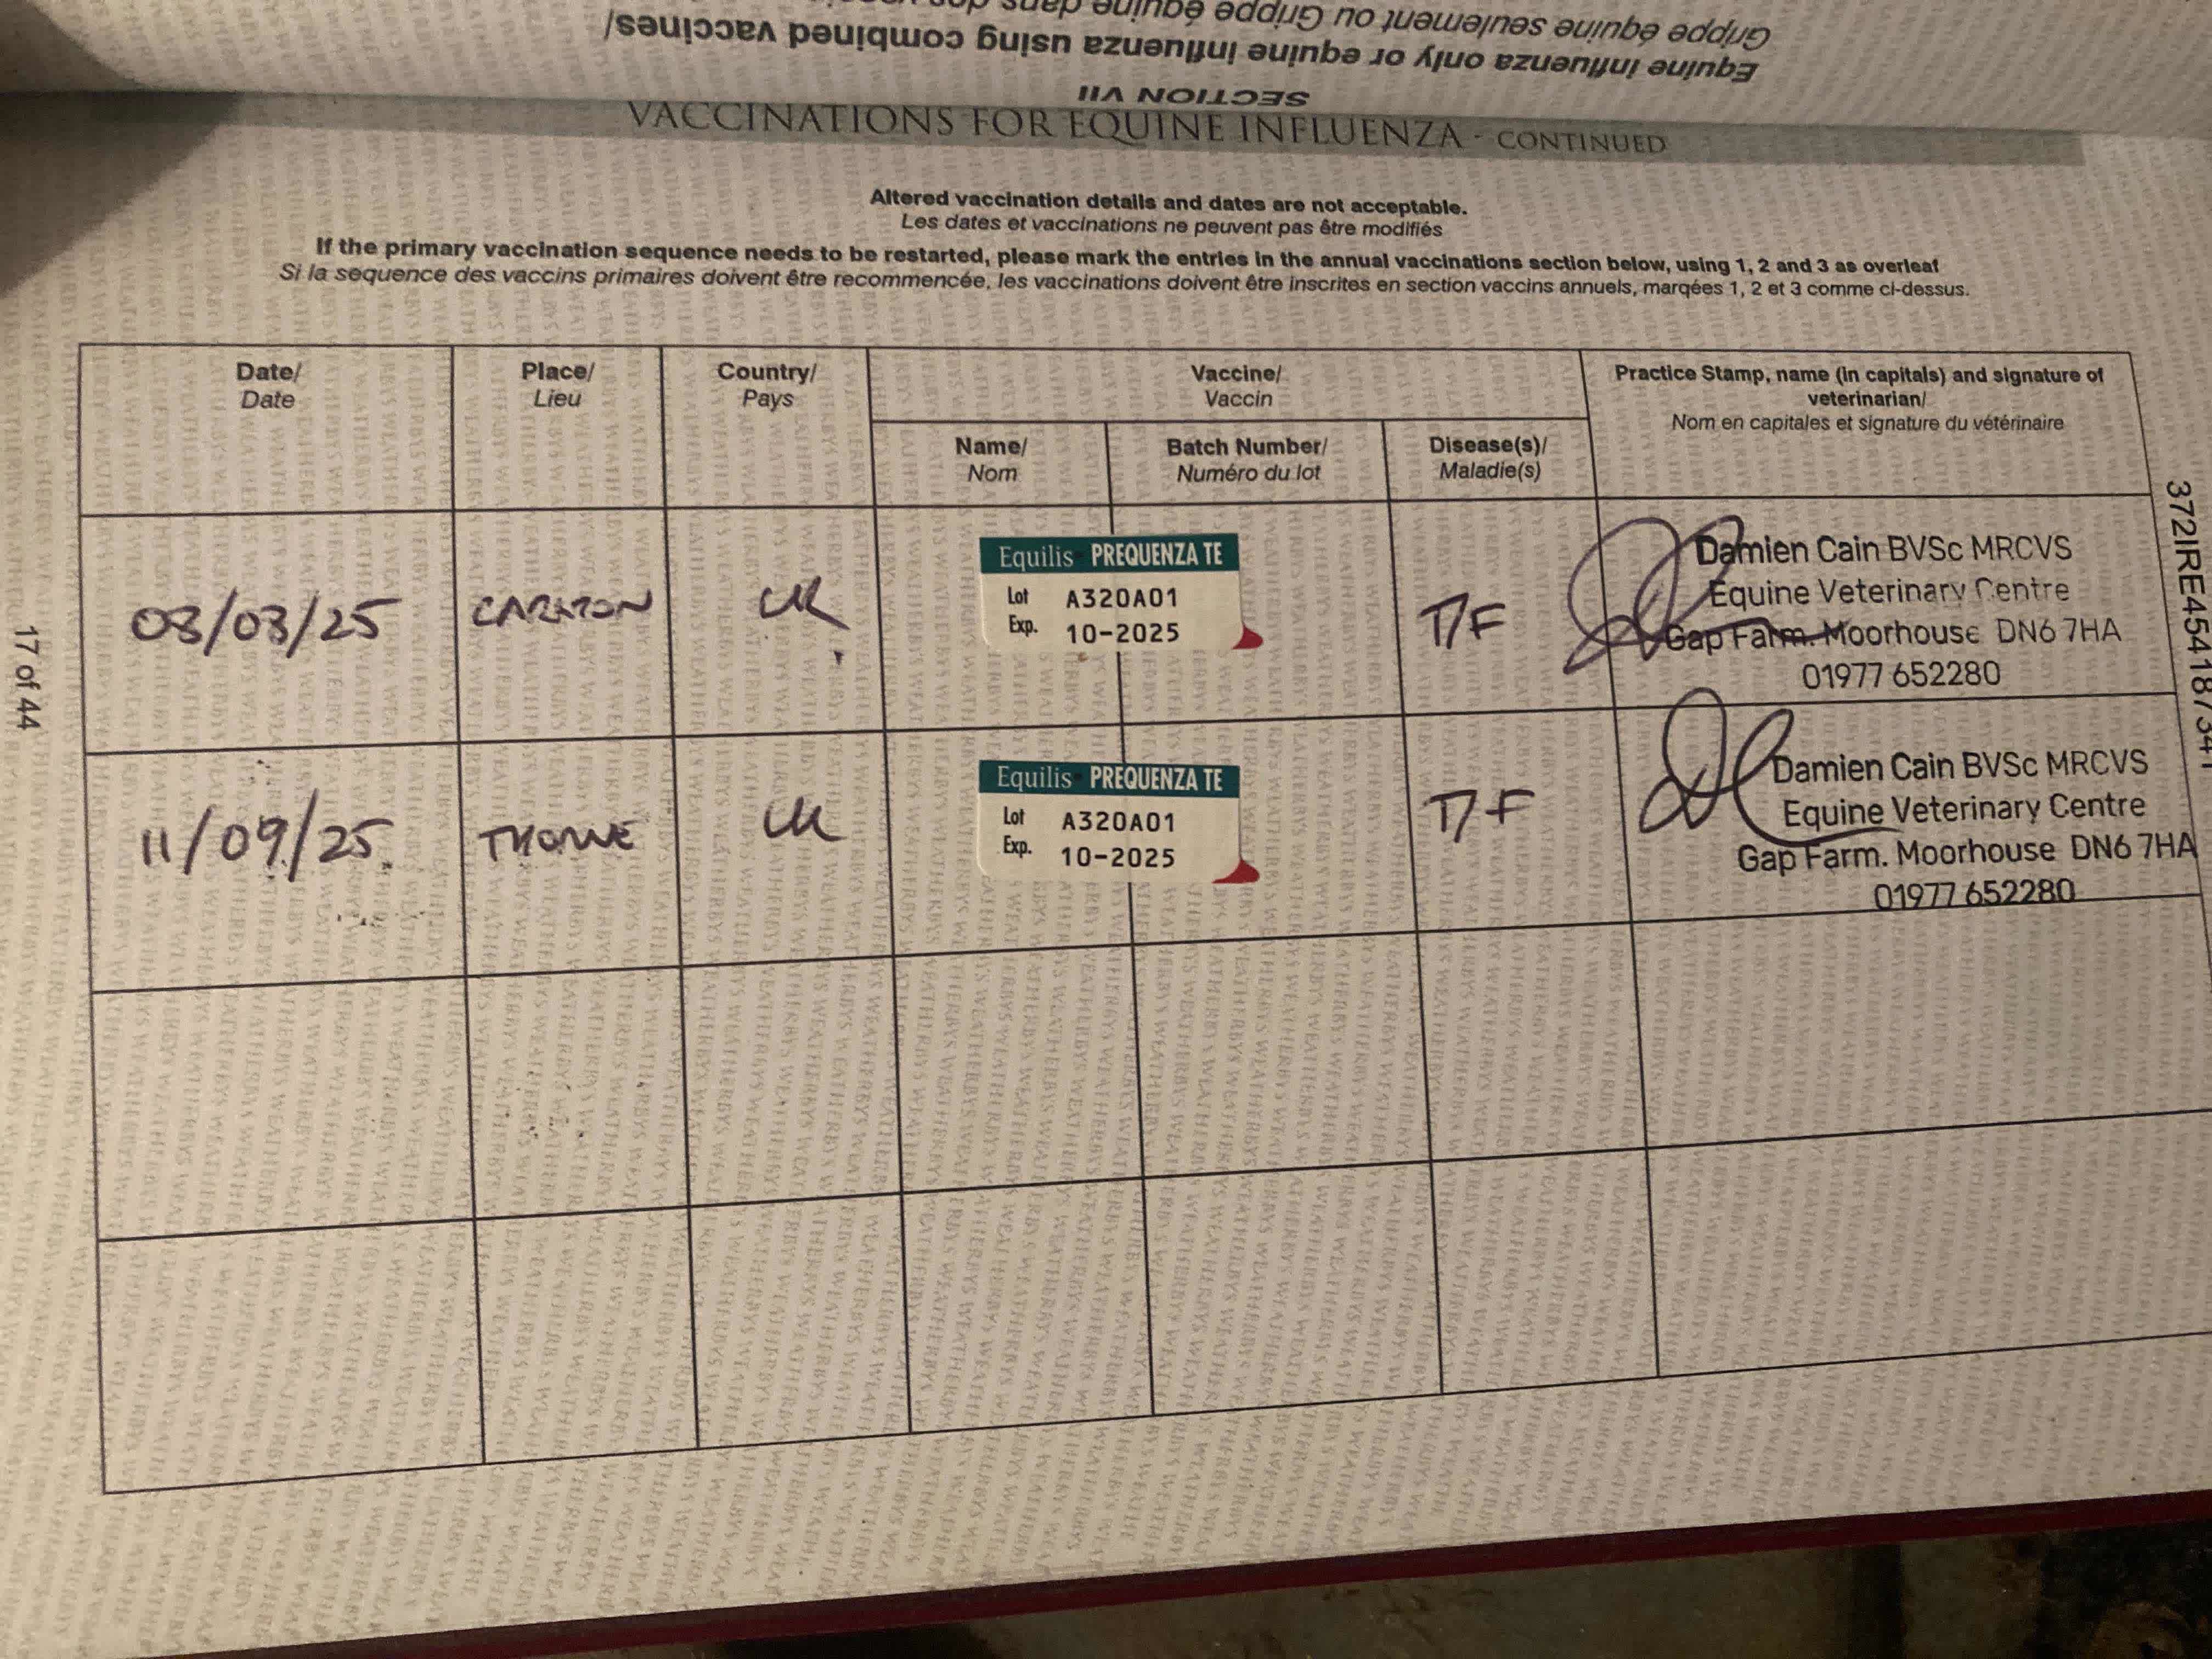 Grippe équine seulement ou Grippe équine dans des
Equine influenza only or equine influenza using combined vaccines/
SECTION VII
VACCINATIONS FOR EQUINE INFLUENZA - CONTINUED
Altered vaccination details and dates are not acceptable.
Les dates et vaccinations ne peuvent pas être modifiés
If the primary vaccination sequence needs to be restarted, please mark the entries in the annual vaccinations section below, using 1, 2 and 3 as overleaf
Si la sequence des vaccins primaires doivent être recommencée, les vaccinations doivent être inscrites en section vaccins annuels, marqées 1, 2 et 3 comme ci-dessus.
Date/
Date
Place/
Lieu
Country/
Pays
Vaccine/
Vaccin
Name/
Nom
Batch Number/
Numéro du lot
Disease(s)/
Maladie(s)
Practice Stamp, name (in capitals) and signature of
veterinarian/
Nom en capitales et signature du vétérinaire
03/03/25
CARLTON
UK
Equilis PREQUENZA TE
Lot A320A01
Exp. 10-2025
T/F
Damien Cain BVSc MRCVS
Equine Veterinary Centre
Gap Farm. Moorhouse DN6 7HA
01977 652280
11/09/25
THORNE
UK
Equilis PREQUENZA TE
Lot A320A01
Exp. 10-2025
T/F
Damien Cain BVSc MRCVS
Equine Veterinary Centre
Gap Farm. Moorhouse DN6 7HA
01977 652280
17 of 44